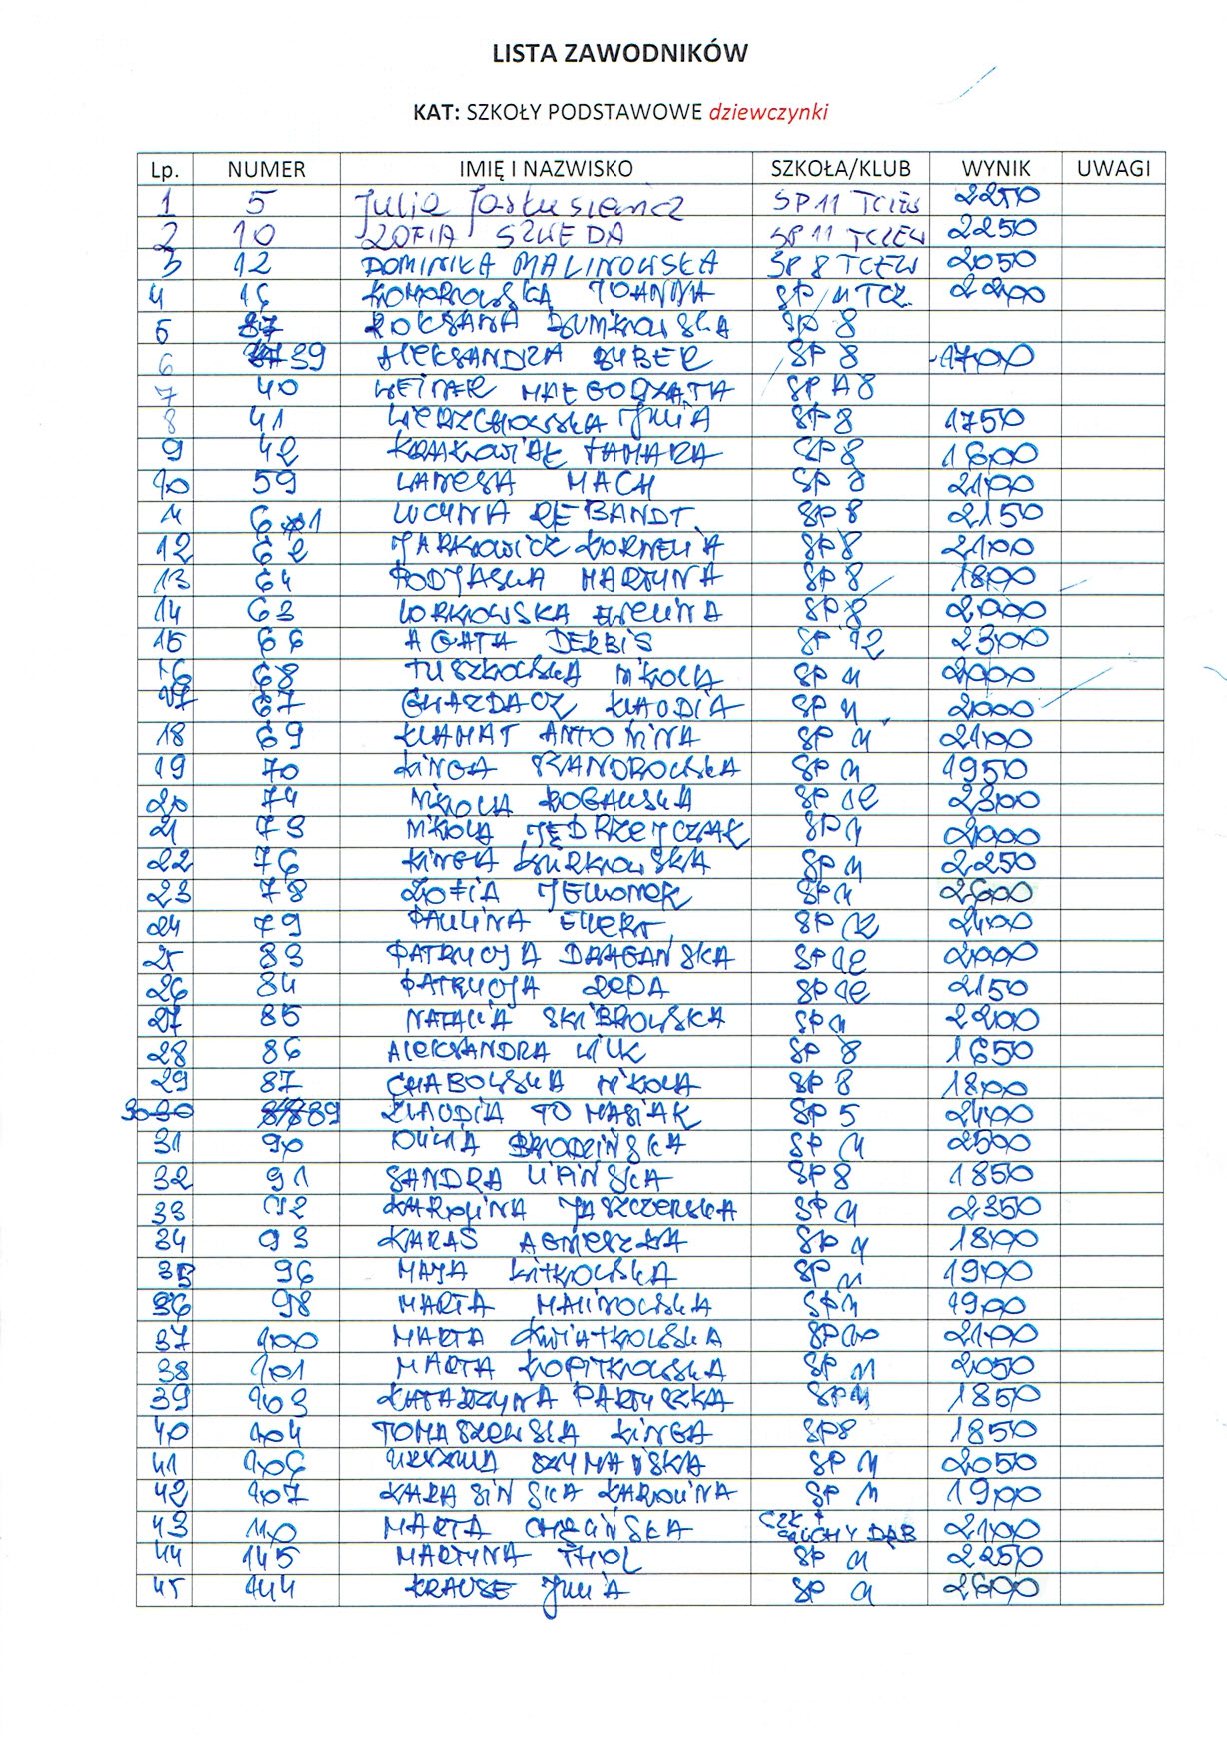 LISTA ZAWODNIKÓW
KAT: SZKOŁY PODSTAWOWE dziewczynki
Lp. NUMER IMIĘ I NAZWISKO SZKOŁA/KLUB WYNIK UWAGI
1 5 Julia SP 11 TCZEW 2250
2 10 ZOFIA SZWEDA SP 11 TCZEW 2250
3 12 DOMINIKA MALINOWSKA SP 8 TCEW 2050
4 16 KOMOROWSKA JOANNA SP 11 TCZ. 2200
5 37 ROKSANA DUMKOWSKA SP 8
6 39 ALEKSANDRA BUBER SP 8 1700
7 40 WEINER MAŁGORZATA SP 8
8 41 WIERZCHOWSKA JULIA SP 8 1750
9 42 TAMARA SP 8 1600
10 59 WANESA MACH SP 8 2100
11 61 LUCYNA REBANDT SP 8 2150
12 62 JARKOWICZ KORNELIA SP 8 2100
13 64 PODJASKA MARTYNA SP 8 1800
14 63 WORKOWSKA EWELINA SP 8 2000
15 66 AGATA DERBIS SP 12 2300
16 68 TUSZKOWSKA NIKOLA SP 11 2000
17 67 GWAZDACZ KLAODIA SP 11 2000
18 69 KLAMAT ANTONINA SP 11 2100
19 70 KINGA SZANDROWSKA SP 11 1950
20 74 NIKOLA ROGALSKA SP 12 2300
21 73 NIKOLA JĘDRZEJCZAK SP 11 2000
22 76 KINGA KURKOWSKA SP 11 2250
23 78 ZOFIA JEWONEK SP 11 2600
24 79 PAULINA ELLERT SP 12 2400
25 83 PATRYCJA DRAGAŃSKA SP 12 2000
26 84 PATRYCJA REDA SP 12 2150
27 85 NATALIA SKIBROWSKA SP 11 2200
28 86 ALEKSANDRA WILK SP 8 1650
29 87 CHABOWSKA NIKOLA SP 8 1800
30 89 KLAODIA TOMASIAK SP 5 2400
31 90 OLIWIA BRODZIŃSKA SP 11 2500
32 91 SANDRA LIPIŃSKA SP 8 1850
33 92 KAROLINA JASZCZERSKA SP 11 2350
34 93 KARAŚ AGNIESZKA SP 11 1800
35 96 MAJA WITKOWSKA SP 11 1900
36 98 MARTA MALINOWSKA SP 11 1900
37 100 MARTA KWIATKOWSKA SP 10 2100
38 101 MARTA KOPITKOWSKA SP 11 2050
39 103 KATARZYNA PARTYSZKA SP 11 1850
40 104 TOMASZEWSKA KINGA SP8 1850
41 106 URSZULA SZYMAŃSKA SP 11 2050
42 107 KARASIŃSKA KAROLINA SP 11 1900
43 110 MARTA CHĘCIŃSKA SUCHY DĄB 2100
44 145 MARTYNA THOL SP 11 2250
45 144 KRAUSE JULIA SP 11 2600